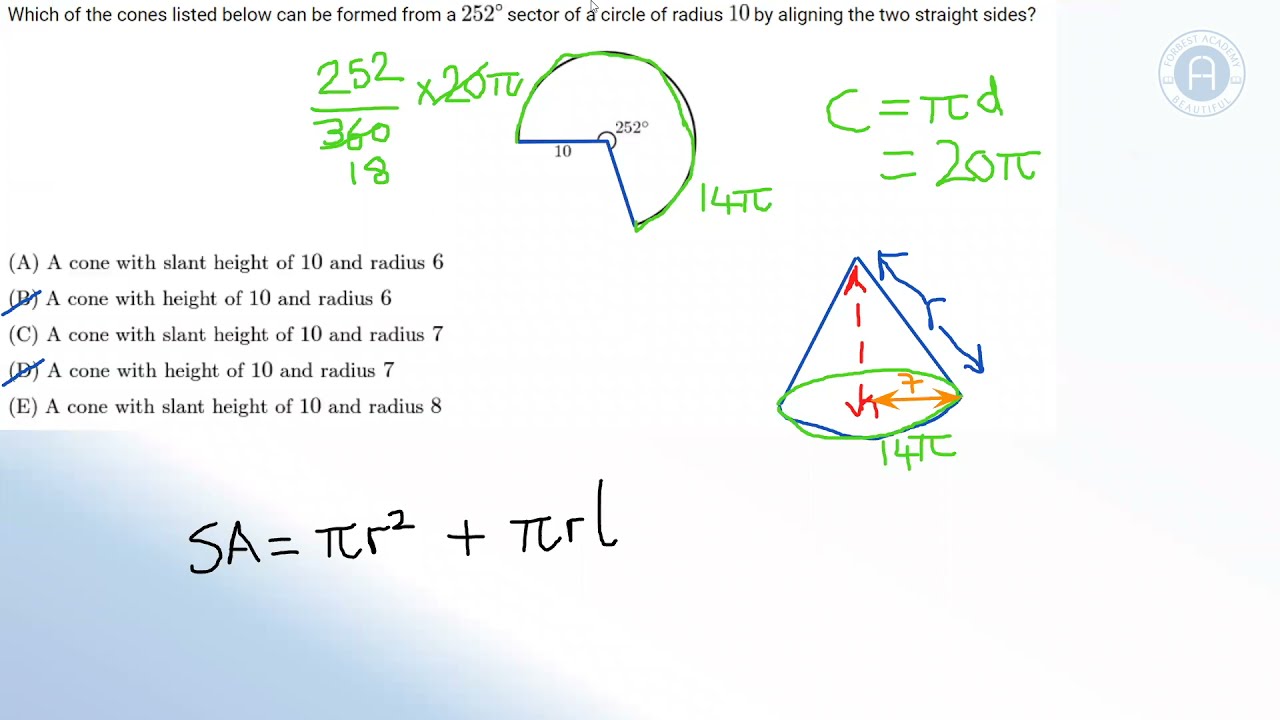 Which of the cones listed below can be formed from a 252° sector of a circle of radius 10 by aligning the two straight sides?
FORBEST ACADEMY
A
E E
BEAUTIFUL
252
360
18
×20π
252°
10
14π
C = πd
= 20π
(A) A cone with slant height of 10 and radius 6
(B) A cone with height of 10 and radius 6
(C) A cone with slant height of 10 and radius 7
(D) A cone with height of 10 and radius 7
(E) A cone with slant height of 10 and radius 8
r
7
14π
SA = πr² + πrl